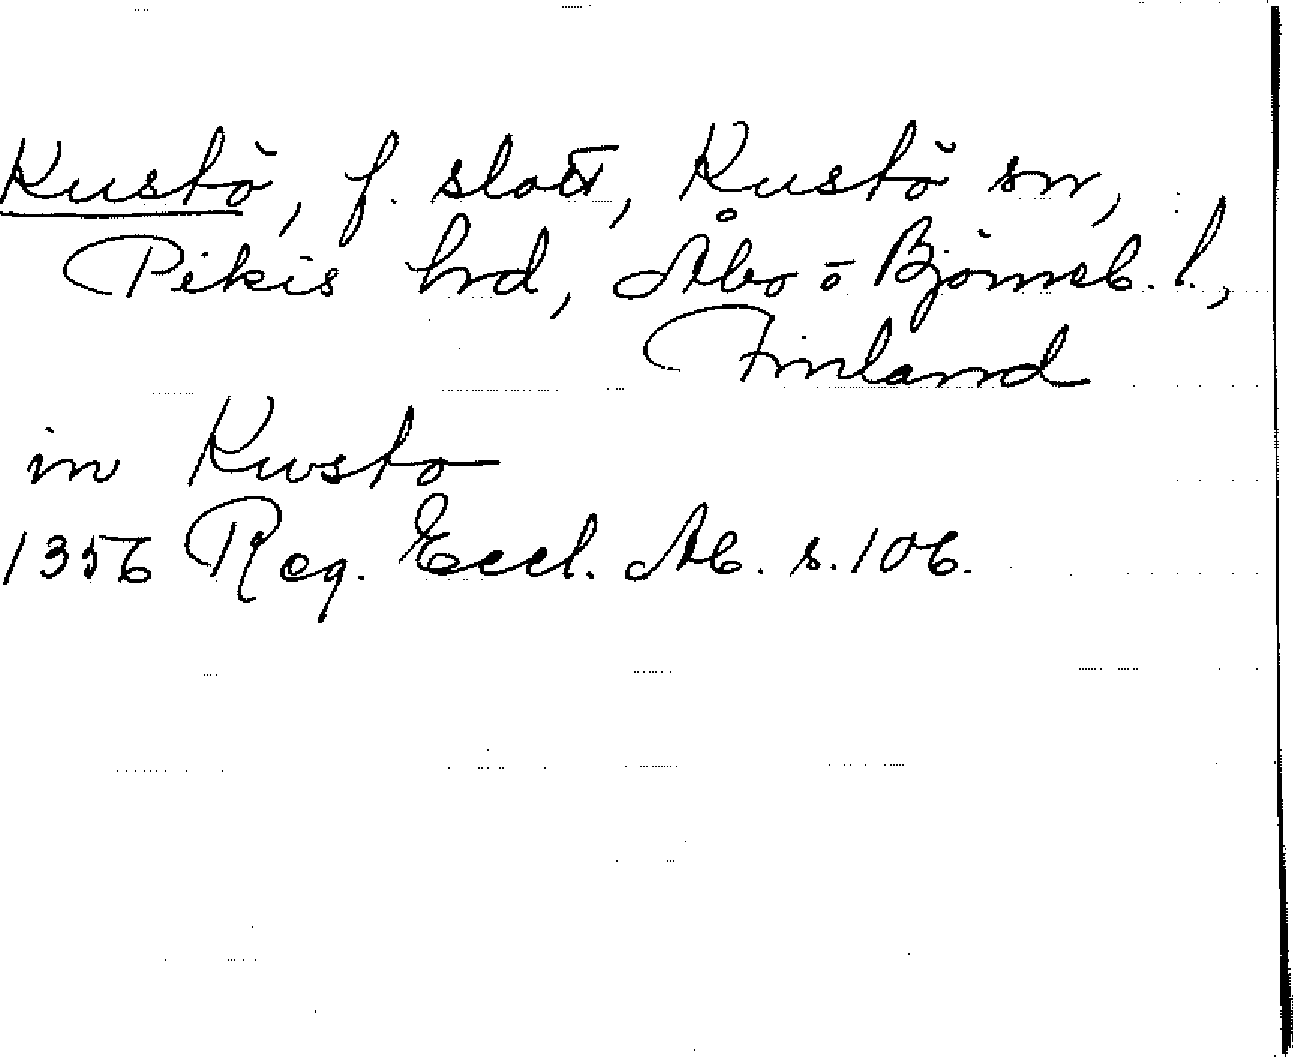 Kustö, f. slott, Kustö sn,
Pikis hrd, Åbo o Björneb. l.,
Finland
in Kwsto
1356 Reg. Eccl. Ab. s. 106.